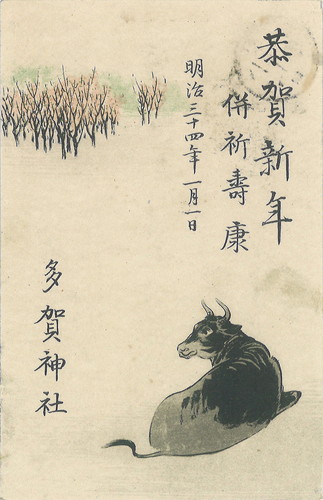 恭賀新年
併祈壽康
明治三十四年一月一日
多賀神社